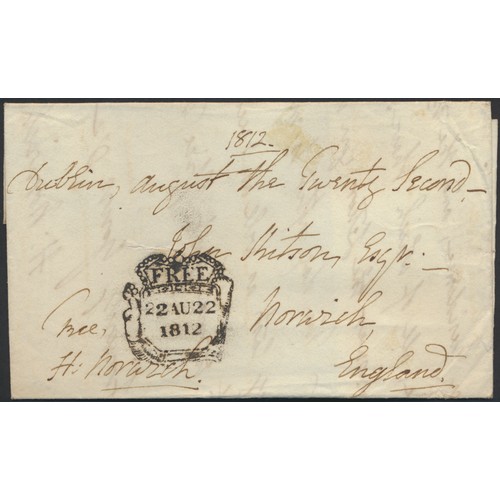 1812.
Dublin, August the Twenty Second
John Kitson, Esqr.
FREE
22 AU 22
1812
Norwich
Free,
H: Norwich.
England.